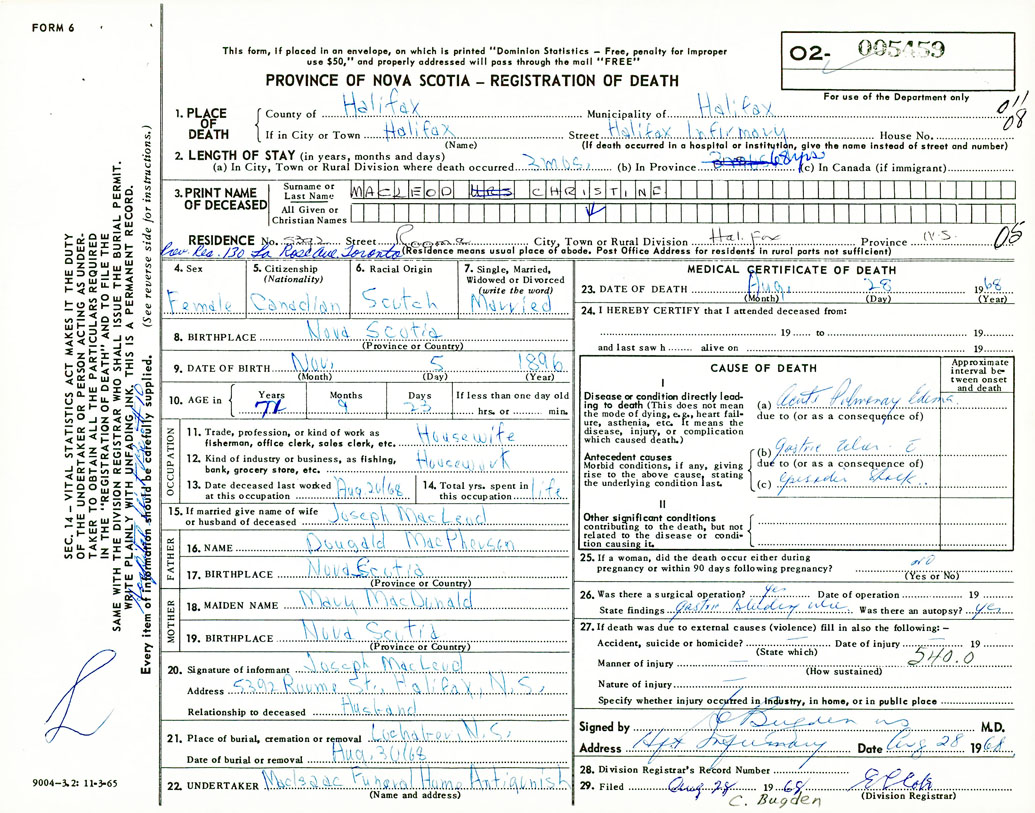 FORM 6
This form, if placed in an envelope, on which is printed "Dominion Statistics – Free, penalty for improper
use $50," and properly addressed will pass through the mail "FREE"
PROVINCE OF NOVA SCOTIA – REGISTRATION OF DEATH
O2- 005459
For use of the Department only
011
08
1. PLACE OF DEATH
County of Halifax Municipality of Halifax
If in City or Town Halifax Street Halifax Infirmary House No.
(Name) (If death occurred in a hospital or institution, give the name instead of street and number)
2. LENGTH OF STAY (in years, months and days)
(a) In City, Town or Rural Division where death occurred 3 mos. (b) In Province 68 yrs (c) In Canada (if immigrant)
3. PRINT NAME OF DECEASED
Surname or Last Name MACLEOD MRS CHRISTINE
All Given or Christian Names
RESIDENCE No. 5392 Street Rooma City, Town or Rural Division Halifax Province N.S. 05
Prev Res. 130 La Rose Ave Toronto (Residence means usual place of abode. Post Office Address for residents in rural parts not sufficient)
4. Sex Female
5. Citizenship (Nationality) Canadian
6. Racial Origin Scotch
7. Single, Married, Widowed or Divorced (write the word) Married
8. BIRTHPLACE Nova Scotia
(Province or Country)
9. DATE OF BIRTH Nov. 5 1896
(Month) (Day) (Year)
10. AGE in Years 71 Months 9 Days 23 If less than one day old hrs. or min.
OCCUPATION
11. Trade, profession, or kind of work as fisherman, office clerk, sales clerk, etc. Housewife
12. Kind of industry or business, as fishing, bank, grocery store, etc. Housework
13. Date deceased last worked at this occupation Aug. 26/68
14. Total yrs. spent in this occupation life
15. If married give name of wife or husband of deceased Joseph MacLeod
FATHER
16. NAME Dougald MacPherson
17. BIRTHPLACE Nova Scotia
(Province or Country)
MOTHER
18. MAIDEN NAME Mary MacDonald
19. BIRTHPLACE Nova Scotia
(Province or Country)
20. Signature of informant Joseph MacLeod
Address 5392 Rooma St., Halifax, N.S.
Relationship to deceased Husband
21. Place of burial, cremation or removal Lochaber, N.S.
Date of burial or removal Aug. 30/68
22. UNDERTAKER MacIsaac Funeral Home Antigonish
(Name and address)
MEDICAL CERTIFICATE OF DEATH
23. DATE OF DEATH Aug. 28 1968
(Month) (Day) (Year)
24. I HEREBY CERTIFY that I attended deceased from:
19 to 19
and last saw h alive on 19
CAUSE OF DEATH
Approximate interval between onset and death
I
Disease or condition directly leading to death (This does not mean the mode of dying, e.g., heart failure, asthenia, etc. It means the disease, injury, or complication which caused death.)
(a) Acute Pulmonary Edema
due to (or as a consequence of)
Antecedent causes
Morbid conditions, if any, giving rise to the above cause, stating the underlying condition last.
(b) Gastric Ulcer
due to (or as a consequence of)
(c) episodes Shock
II
Other significant conditions
contributing to the death, but not related to the disease or condition causing it.
25. If a woman, did the death occur either during pregnancy or within 90 days following pregnancy? no
(Yes or No)
26. Was there a surgical operation? yes Date of operation 19
State findings Gastric Bleeding ulcer Was there an autopsy? yes
27. If death was due to external causes (violence) fill in also the following: –
Accident, suicide or homicide? Date of injury 19
(State which) 540.0
Manner of injury
(How sustained)
Nature of injury
Specify whether injury occurred in industry, in home, or in public place
Signed by C Bugden M.D.
Address Hfx Infirmary Date Aug 28 1968
28. Division Registrar's Record Number
29. Filed Aug 28 1968
(Division Registrar)
C. Bugden
SEC. 14 – VITAL STATISTICS ACT MAKES IT THE DUTY
OF THE UNDERTAKER OR PERSON ACTING AS UNDER-
TAKER TO OBTAIN ALL THE PARTICULARS REQUIRED
IN THE "REGISTRATION OF DEATH" AND TO FILE THE
SAME WITH THE DIVISION REGISTRAR WHO SHALL ISSUE THE BURIAL PERMIT.
WRITE PLAINLY WITH UNFADING INK. THIS IS A PERMANENT RECORD.
Every item of information should be carefully supplied. (See reverse side for instructions.)
9004–3.2: 11-3-65